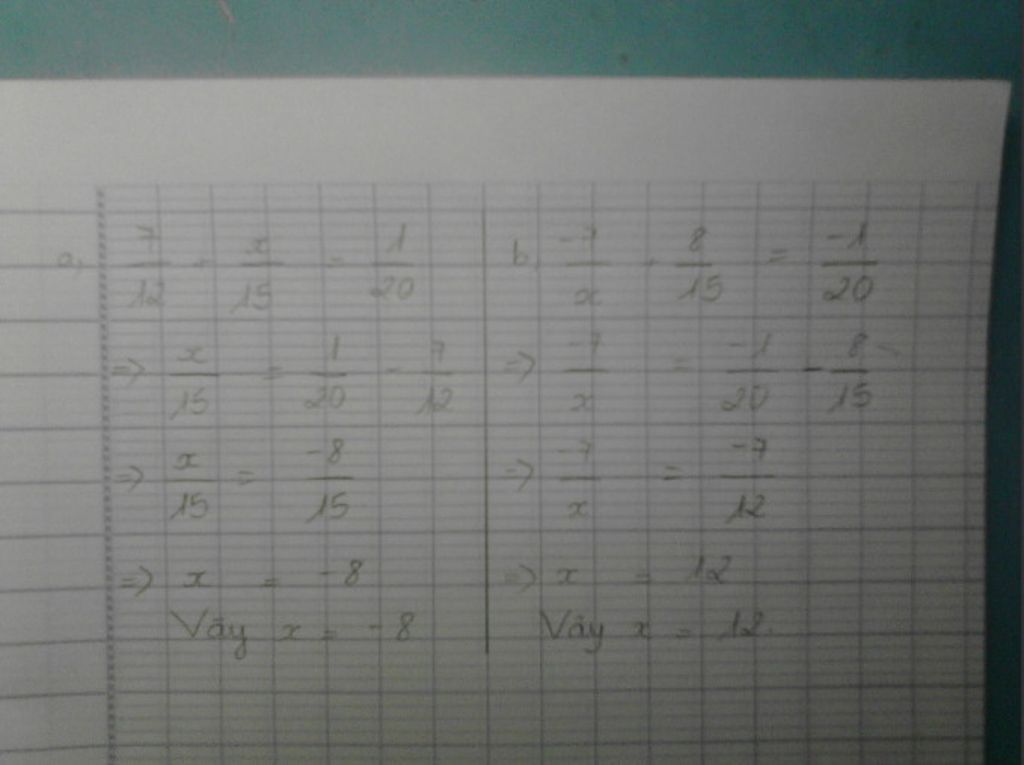 a, 7/12 + x/15 = 1/20
=> x/15 = 1/20 - 7/12
=> x/15 = -8/15
=> x = -8
Vậy x = -8
b, -7/x + 8/15 = -1/20
=> -7/x = -1/20 - 8/15
=> -7/x = -7/12
=> x = 12
Vậy x = 12.